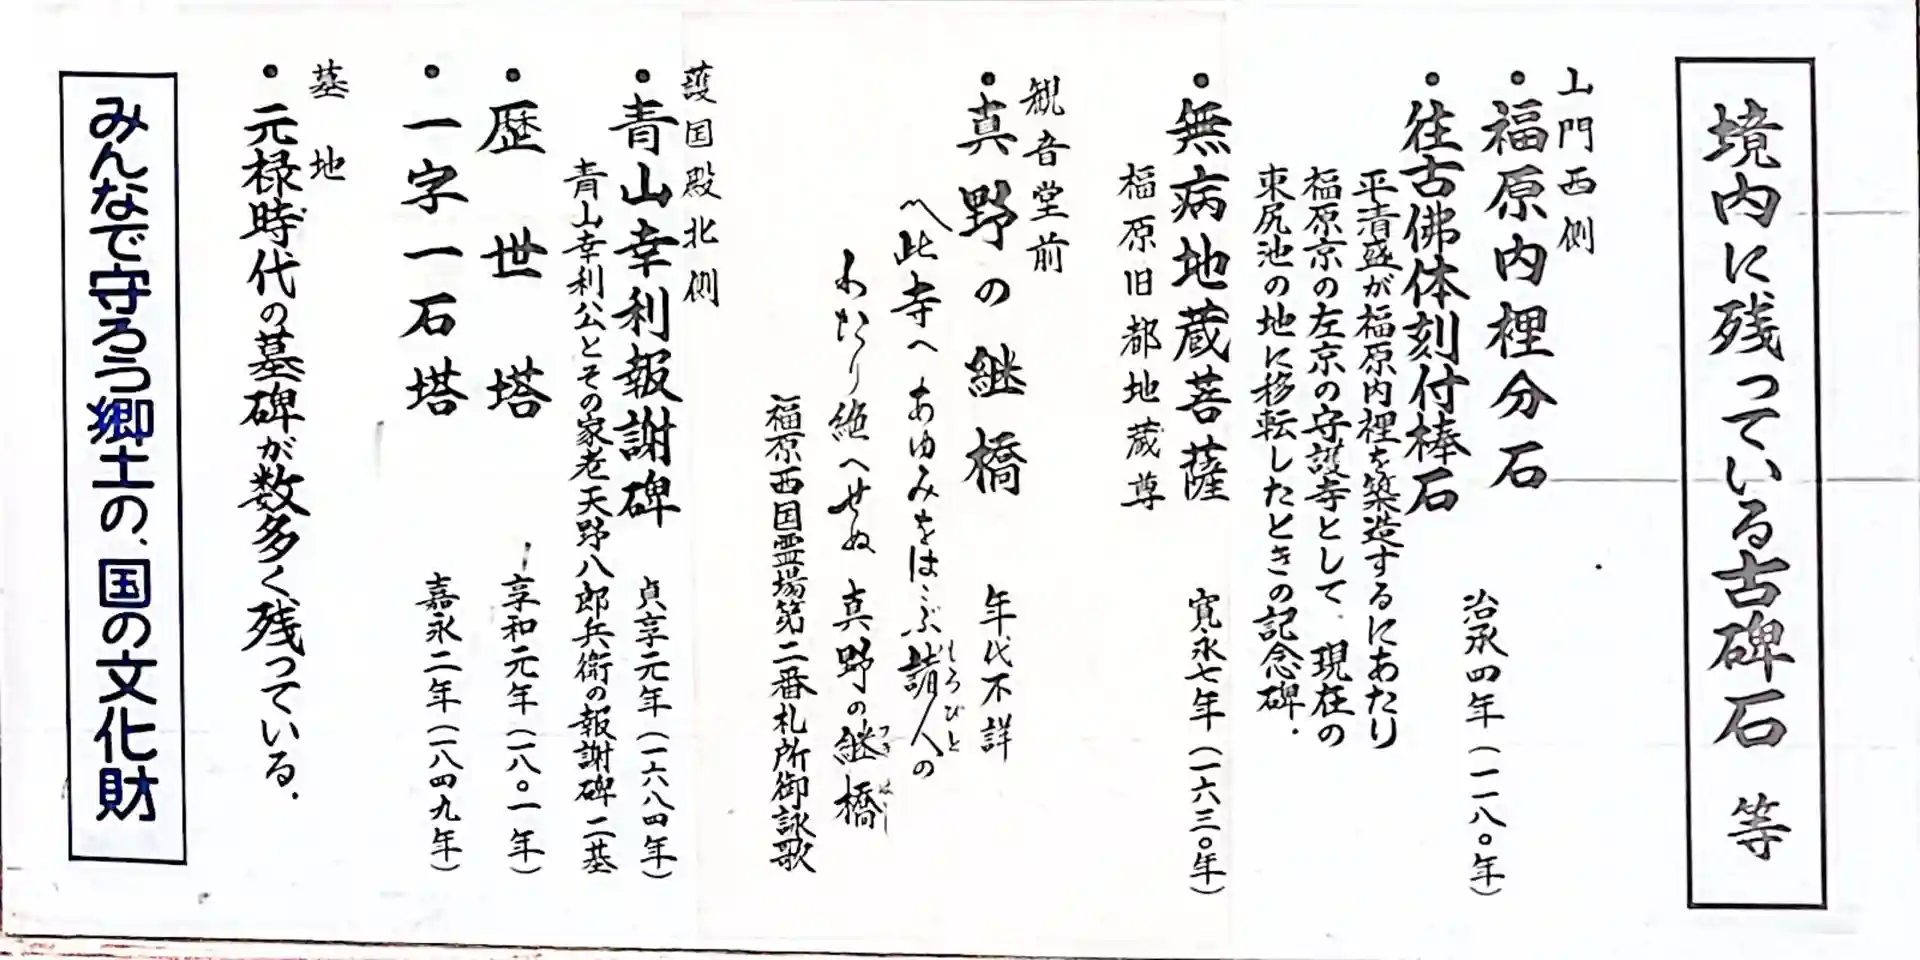 境内に残っている古碑石 等
山門西側
・福原内裡分石
・往古佛体刻付棒石 治承四年(一一八〇年)
平清盛が福原内裡を築造するにあたり
福原京の左京の守護寺として、現在の
東尻池の地に移転したときの記念碑.
・無病地蔵菩薩 寛永七年(一六三〇年)
福原旧都地蔵尊
観音堂前
・真野の継橋 年代不詳
〽此寺へ あゆみをはこぶ 諸人の
しょびと
わたり絶へせぬ 真野の継橋
つぎはし
福原西国霊場第二番札所御詠歌
護国殿北側
・青山幸利報謝碑 貞享元年(一六八四年)
青山幸利公とその家老天野八郎兵衛の報謝碑 二基
・歴世塔 享和元年(一八〇一年)
・一字一石塔 嘉永二年(一八四九年)
墓地
・元禄時代の墓碑が数多く残っている.
みんなで守ろう郷土の、国の文化財